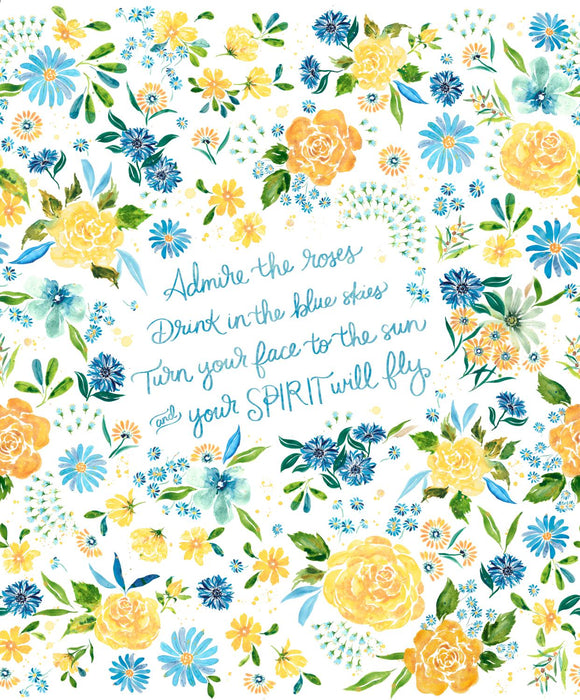 Admire the roses
Drink in the blue skies
Turn your face to the sun
and your SPIRIT will fly